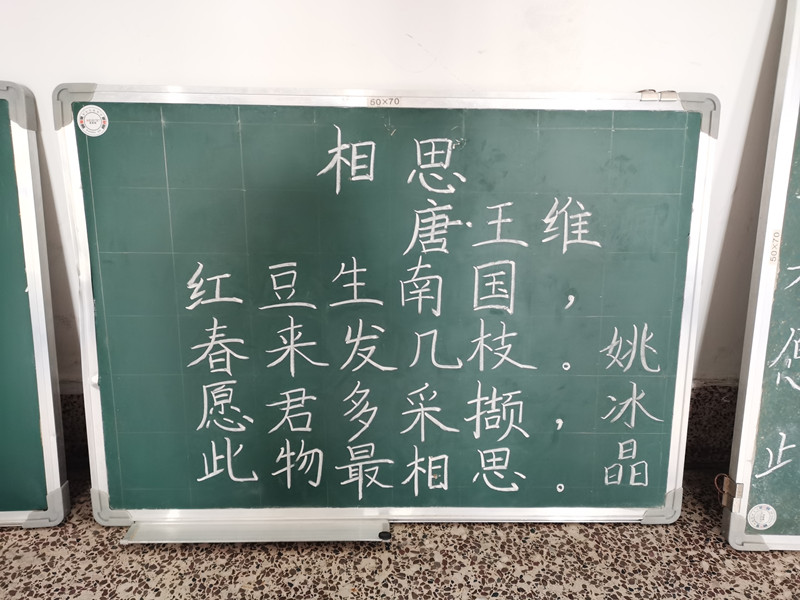 50×70
相思
唐·王维
红豆生南国，
春来发几枝。
愿君多采撷，
此物最相思。
姚冰晶
50×70
止